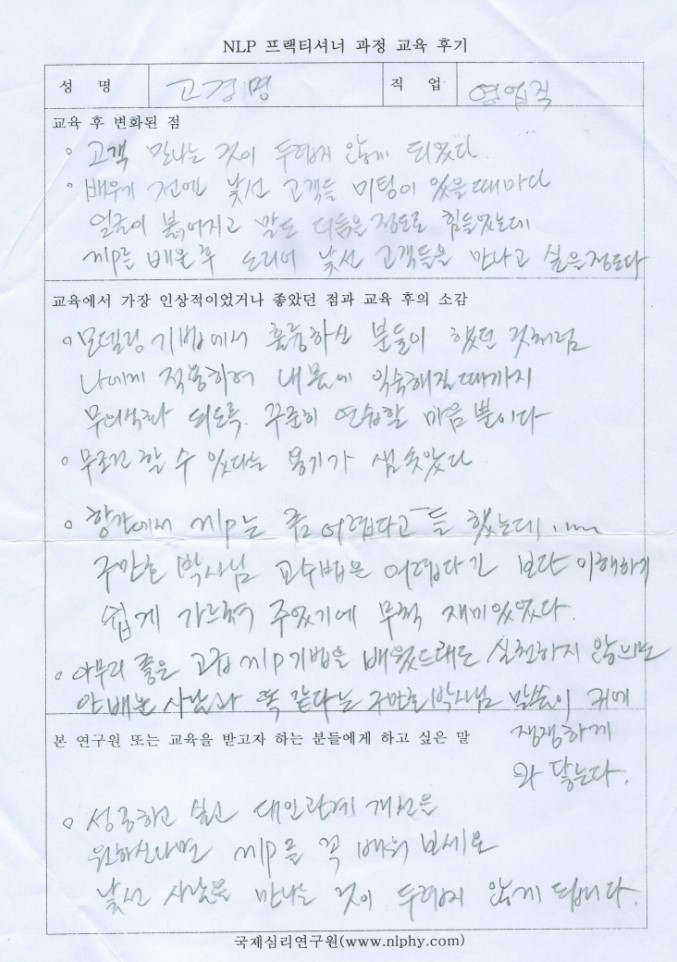 NLP 프랙티셔너 과정 교육 후기
성 명 고경명 직 업 영업직
교육 후 변화된 점
◦ 고객 만나는 것이 두렵지 않게 되었다.
◦ 배우기 전엔 낯선 고객들 미팅이 있을때마다
얼굴이 붉어지고 말도 더듬을 정도로 힘들었는데
NLP를 배운 후 도리어 낯선 고객들을 만나고 싶은정도다
교육에서 가장 인상적이었거나 좋았던 점과 교육 후의 소감
◦ 모델링 기법에서 훌륭하신 분들이 했던 것처럼
나에게 적용하여 내몸에 익숙해질때까지
되도록 꾸준히 연습할 마음 뿐이다
◦ 무조건 할 수 있다는 용기가 샘솟았다
◦ 항간에서 NLP는 좀 어렵다고들 했는데.....
박사님 교수법은 어렵다기 보단 이해하기
쉽게 가르쳐 주었기에 무척 재미있었다.
◦ 아무리 좋은 고급 NLP기법을 배웠드래도 실천하지 않으면
안배운 사람과 똑 같다는 박사님 말씀이 귀에
쟁쟁하게
와 닿는다.
본 연구원 또는 교육을 받고자 하는 분들에게 하고 싶은 말
◦ 성공하고 싶고 대인관계 개선을
원하신다면 NLP를 꼭 배워 보세요
낯선 사람을 만나는 것이 두렵지 않게 됩니다.
국제심리연구원(www.nlphy.com)